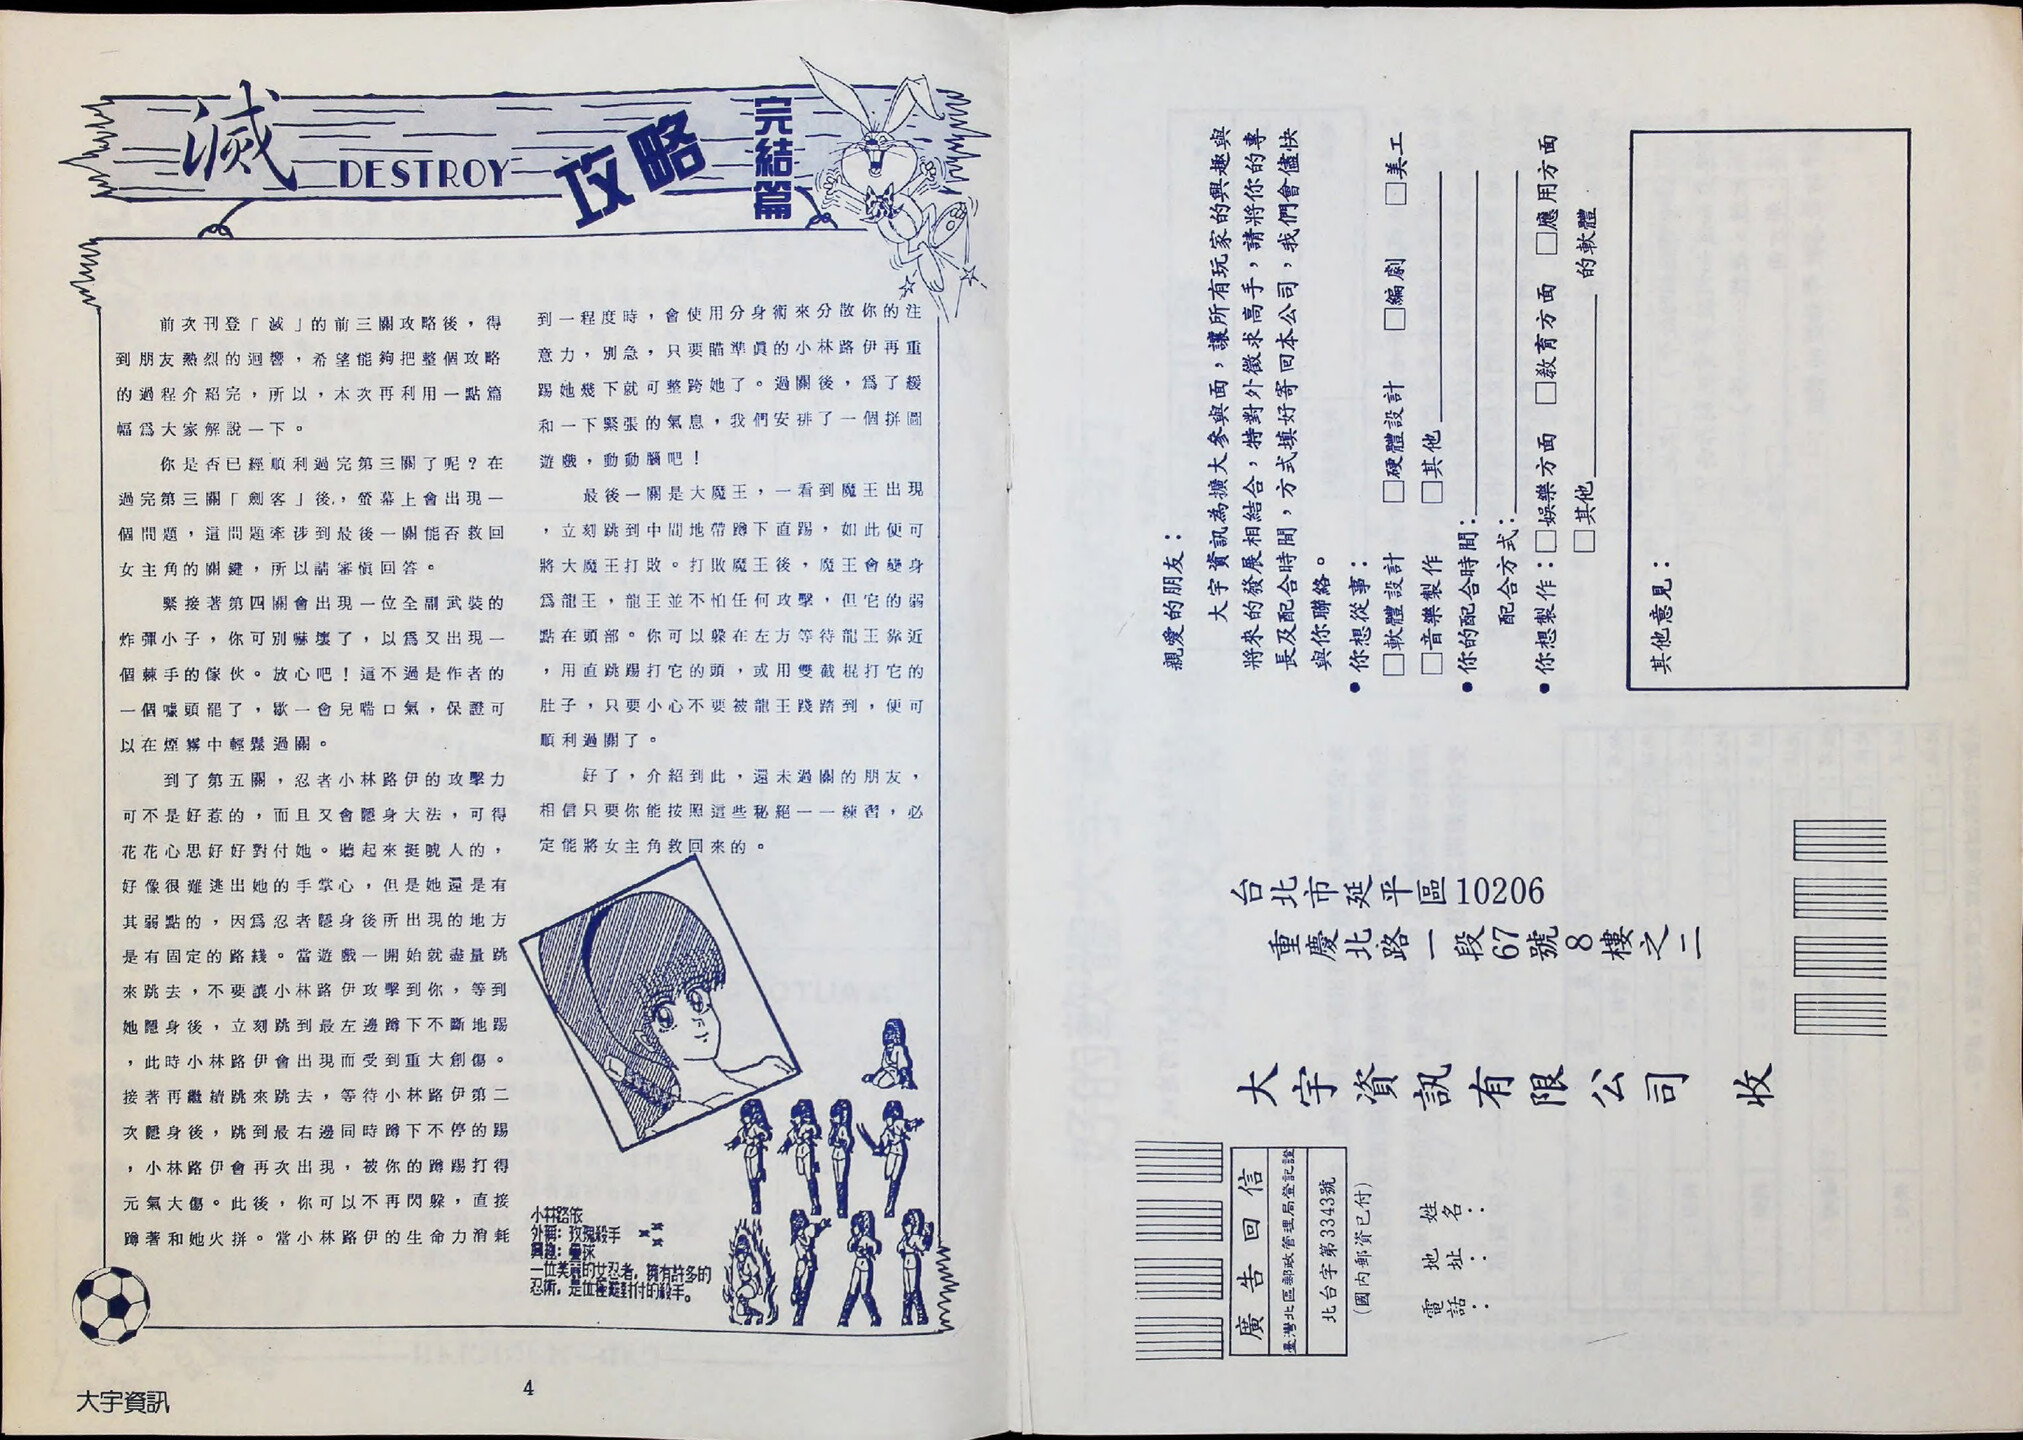 滅 DESTROY 攻略 完結篇
前次刊登「滅」的前三關攻略後，得
到朋友熱烈的迴響，希望能夠把整個攻略
的過程介紹完，所以，本次再利用一點篇
幅為大家解說一下。
你是否已經順利過完第三關了呢？在
過完第三關「劍客」後，螢幕上會出現一
個問題，這問題牽涉到最後一關能否救回
女主角的關鍵，所以請審慎回答。
緊接著第四關會出現一位全副武裝的
炸彈小子，你可別嚇壞了，以為又出現一
個棘手的傢伙。放心吧！這不過是作者的
一個噱頭罷了，歇一會兒喘口氣，保證可
以在煙霧中輕鬆過關。
到了第五關，忍者小林路伊的攻擊力
可不是好惹的，而且又會隱身大法，可得
花花心思好好對付她。聽起來挺唬人的，
好像很難逃出她的手掌心，但是她還是有
其弱點的，因為忍者隱身後所出現的地方
是有固定的路綫。當遊戲一開始就盡量跳
來跳去，不要讓小林路伊攻擊到你，等到
她隱身後，立刻跳到最左邊蹲下不斷地踢
，此時小林路伊會出現而受到重大創傷。
接著再繼續跳來跳去，等待小林路伊第二
次隱身後，跳到最右邊同時蹲下不停的踢
，小林路伊會再次出現，被你的蹲踢打得
元氣大傷。此後，你可以不再閃躲，直接
蹲著和她火拼。當小林路伊的生命力消耗
到一程度時，會使用分身術來分散你的注
意力，別急，只要瞄準真的小林路伊再重
踢她幾下就可整跨她了。過關後，為了緩
和一下緊張的氣息，我們安排了一個拼圖
遊戲，動動腦吧！
最後一關是大魔王，一看到魔王出現
，立刻跳到中間地帶蹲下直踢，如此便可
將大魔王打敗。打敗魔王後，魔王會變身
為龍王，龍王並不怕任何攻擊，但它的弱
點在頭部。你可以躲在左方等待龍王靠近
，用直跳踢打它的頭，或用雙截棍打它的
肚子，只要小心不要被龍王踐踏到，便可
順利過關了。
好了，介紹到此，還未過關的朋友，
相信只要你能按照這些秘絕一一練習，必
定能將女主角救回來的。
小林路依
外稱：玫瑰殺手
興趣：壘球
一位美麗的女忍者，擁有許多的
忍術，是位極難對付的殺手。
大宇資訊
4
親愛的朋友：
大宇資訊為擴大參與面，讓所有玩家的興趣與
將來的發展相結合，特對外徵求高手，請將你的專
長及配合時間，方式填好寄回本公司，我們會儘快
與你聯絡。
●你想從事：
□軟體設計 □硬體設計 □編劇 □美工
□音樂製作 □其他
●你的配合時間：
配合方式：
●你想製作：□娛樂方面 □教育方面 □應用方面
□其他 的軟體
其他意見：
台北市延平區10206
重慶北路一段67號8樓之二
大宇資訊有限公司 收
廣告回信
臺灣北區郵政管理局登記證
北台字第3343號
(國內郵資已付)
姓名：
地址：
電話：